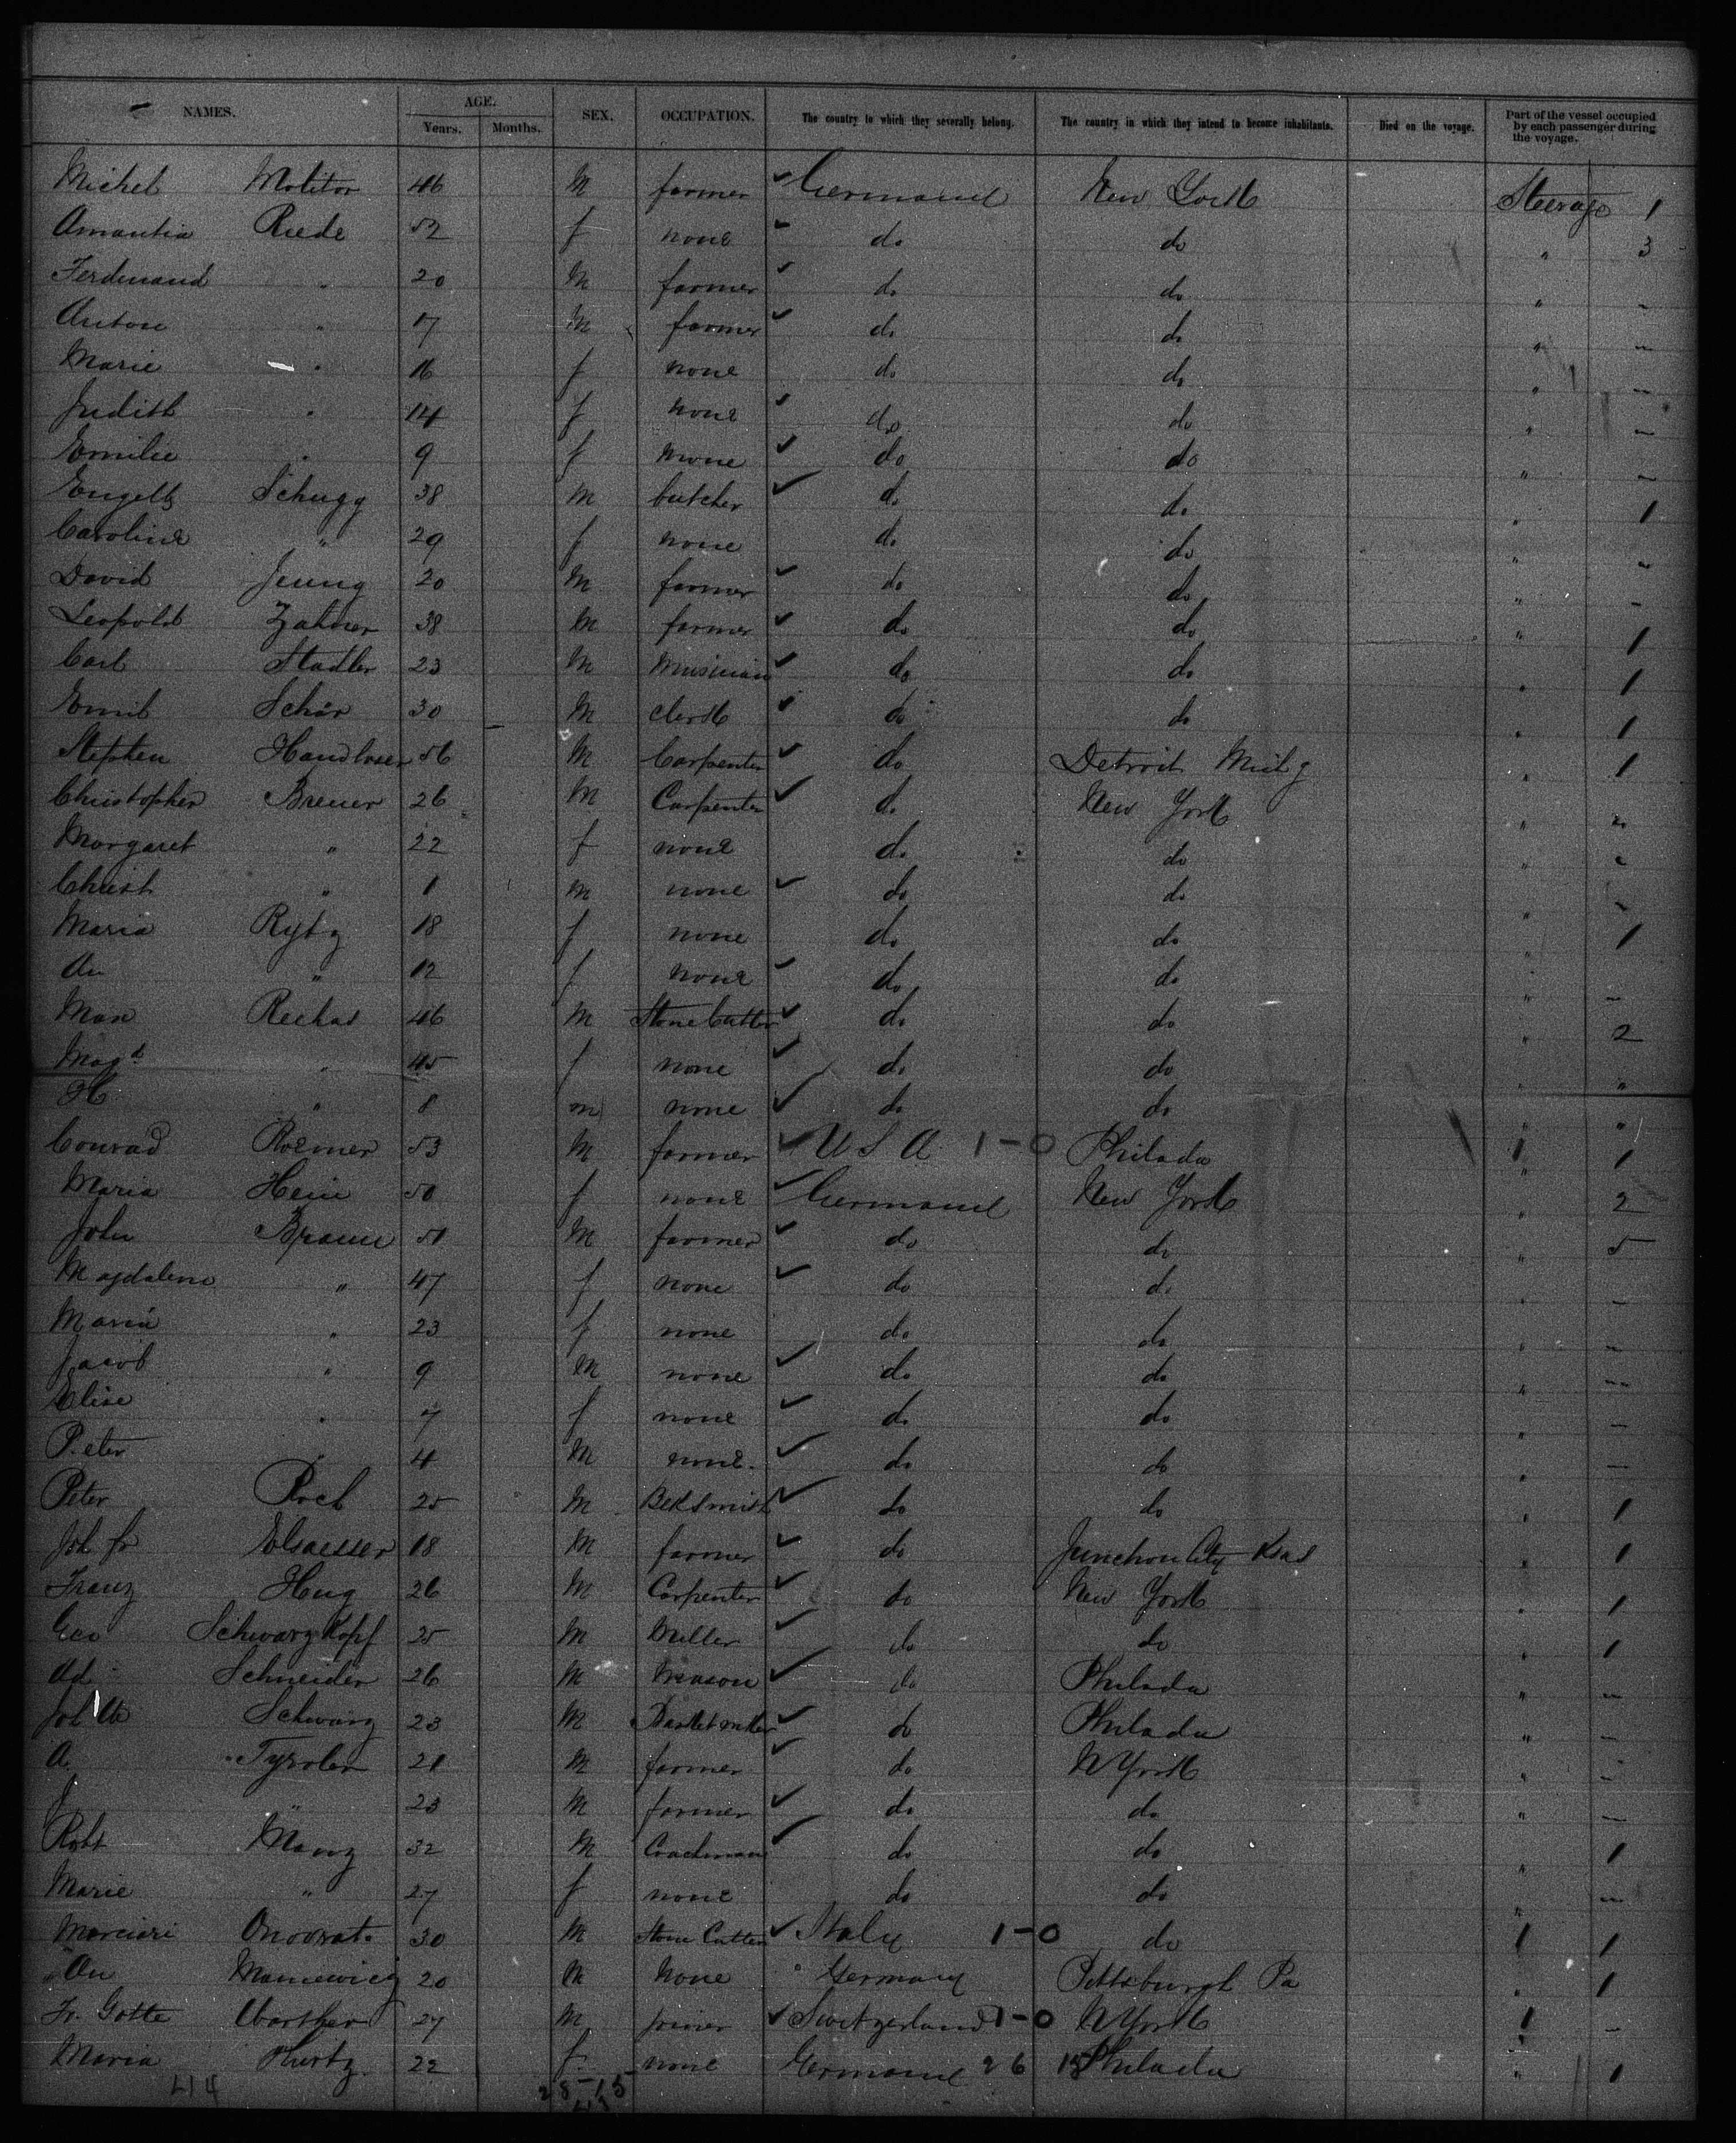 NAMES. AGE. Years. Months. SEX. OCCUPATION. The country to which they severally belong. The country in which they intend to become inhabitants. Died on the voyage. Part of the vessel occupied by each passenger during the voyage.
Michel Molitor 46 M farmer ✓ Germany New York Steerage 1
Amantia Riede 52 f none do do " 3
Ferdinand " 20 M farmer ✓ do do " "
Anton " 17 M farmer ✓ do do " "
Marie " 16 f none do do " "
Judith " 14 f none ✓ do do " "
Emilie " 9 f none ✓ do do " "
Engelb Schugg 38 M butcher ✓ do do " 1
Caroline " 29 f none do do " "
David Jeung 20 M farmer ✓ do do " "
Leopold Zahner 38 M farmer ✓ do do " 1
Carl Stadler 23 M Musician ✓ do do " 1
Emil Schär 30 M clerk ✓ do do " 1
Stephen Handloser 56 M Carpenter ✓ do Detroit " 1
Christopher Breuer 26 M Carpenter ✓ do New York " 2
Margaret " 22 f none do do " "
Christ " 1 m none ✓ do do " "
Maria Rytz 18 f none do do " 1
An " 12 f none ✓ do do " "
Max 46 M Stone Cutter ✓ do do " 2
Magd " 45 f none ✓ do do " "
H " 8 m none ✓ do do " "
Conrad Roemer 53 M farmer ✓ U S A 1-0 Philada " 1
Maria Hein 50 f none ✓ Germany New York " 2
John Braun 51 M farmer ✓ do do " 5
Magdalena " 47 f none ✓ do do " "
Maria " 23 f none do do " "
Jacob " 9 M none ✓ do do " "
Elise " 7 f none ✓ do do " "
Peter " 4 M none ✓ do do " "
Peter 25 M Blksmith ✓ do do " 1
Joh fr Elsaesser 18 M farmer ✓ do Junction City Kas " 1
Franz Hug 26 M Carpenter ✓ do New York " 1
Geo Schwarzkopf 25 M Miller ✓ do do " 1
Ad Schneider 26 M Mason ✓ do Philada " "
Joh Schwarz 23 M Basketmker ✓ do Philada " "
A Tyroler 21 M farmer ✓ do N York " "
J " 23 M farmer ✓ do do " "
Robt Manz 32 M Coachman ✓ do do " 1
Marie " 27 f none do do " "
Marcieri Onoorato 30 M Stone Cutter ✓ Italy 1-0 do 1
An Maniewicz 20 M none Germany Pittsburgh Pa " 1
Fr. Gotte 27 M joiner ✓ Switzerland 1-0 N York "
Maria Hurtz 22 f none Germany 26 15 Philada " 1
414 28-15